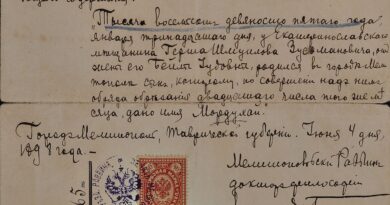 Тысяча восемьсот девяносто пятаго года
Января тринадцатаго дня, у Екатеринославскаго
мѣщанина Герша Шмулова Зусмановича, отъ
жены его Бейлы Губовны, родился въ городѣ Ме-
литополѣ сынъ, которому, по совершеніи надъ нимъ
обряда обрѣзанія двадцатаго числа того же мѣ-
сяца, дано имя Мордухай.
Городъ Мелитополь, Таврической губерніи. Іюня 4 дня,
1898 года.
Мелитопольскій Раввинъ
докторъ философіи